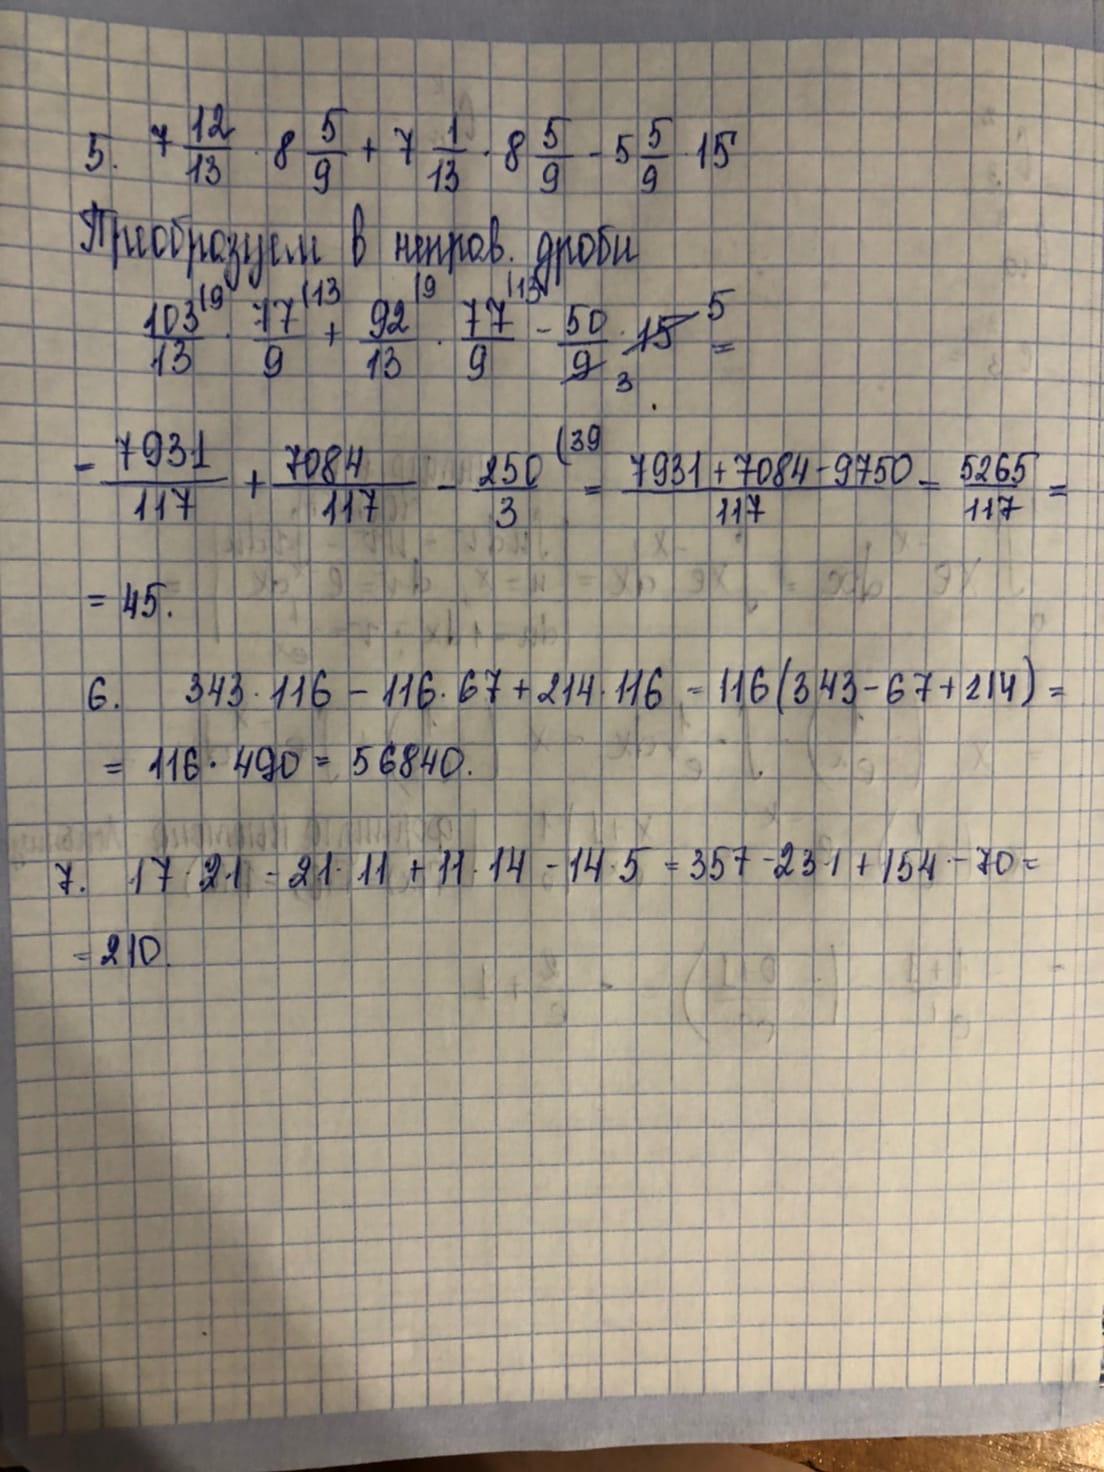 5. 7 12/13 · 8 5/9 + 7 1/13 · 8 5/9 - 5 5/9 · 15
Приобразуем в неправ. дроби
103/13 (9 · 77/9 (13 + 92/13 (9 · 77/9 (13 - 50/9 3 · 15 5 =
= 7931/117 + 7084/117 - 250/3 (39 = 7931+7084-9750/117 = 5265/117 =
= 45.
6. 343 · 116 - 116 · 67 + 214 · 116 = 116(343-67+214) =
= 116 · 490 = 56840.
7. 17 · 21 - 21 · 11 + 11 · 14 - 14 · 5 = 357 - 231 + 154 - 70 =
= 210.